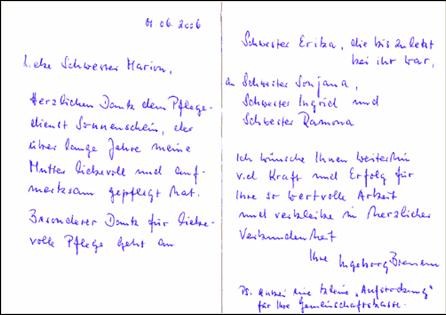 01.06.2006
Liebe Schwester Marion,
Herzlichen Dank dem Pflege-
dienst Sonnenschein, der
über lange Jahre meine
Mutter liebevoll und auf-
merksam gepflegt hat.
Besonderer Dank für liebe-
volle Pflege geht an
Schwester Erika, die bis zuletzt
bei ihr war,
an Schwester Sonjana,
Schwester Ingrid und
Schwester Ramona
Ich wünsche Ihnen weiterhin
viel Kraft und Erfolg für
Ihre so wertvolle Arbeit
und verbleibe in herzlicher
Verbundenheit
Ihre Ingeborg
PS. Anbei eine kleine „Aufstockung"
für Ihre Gemeinschaftskasse.